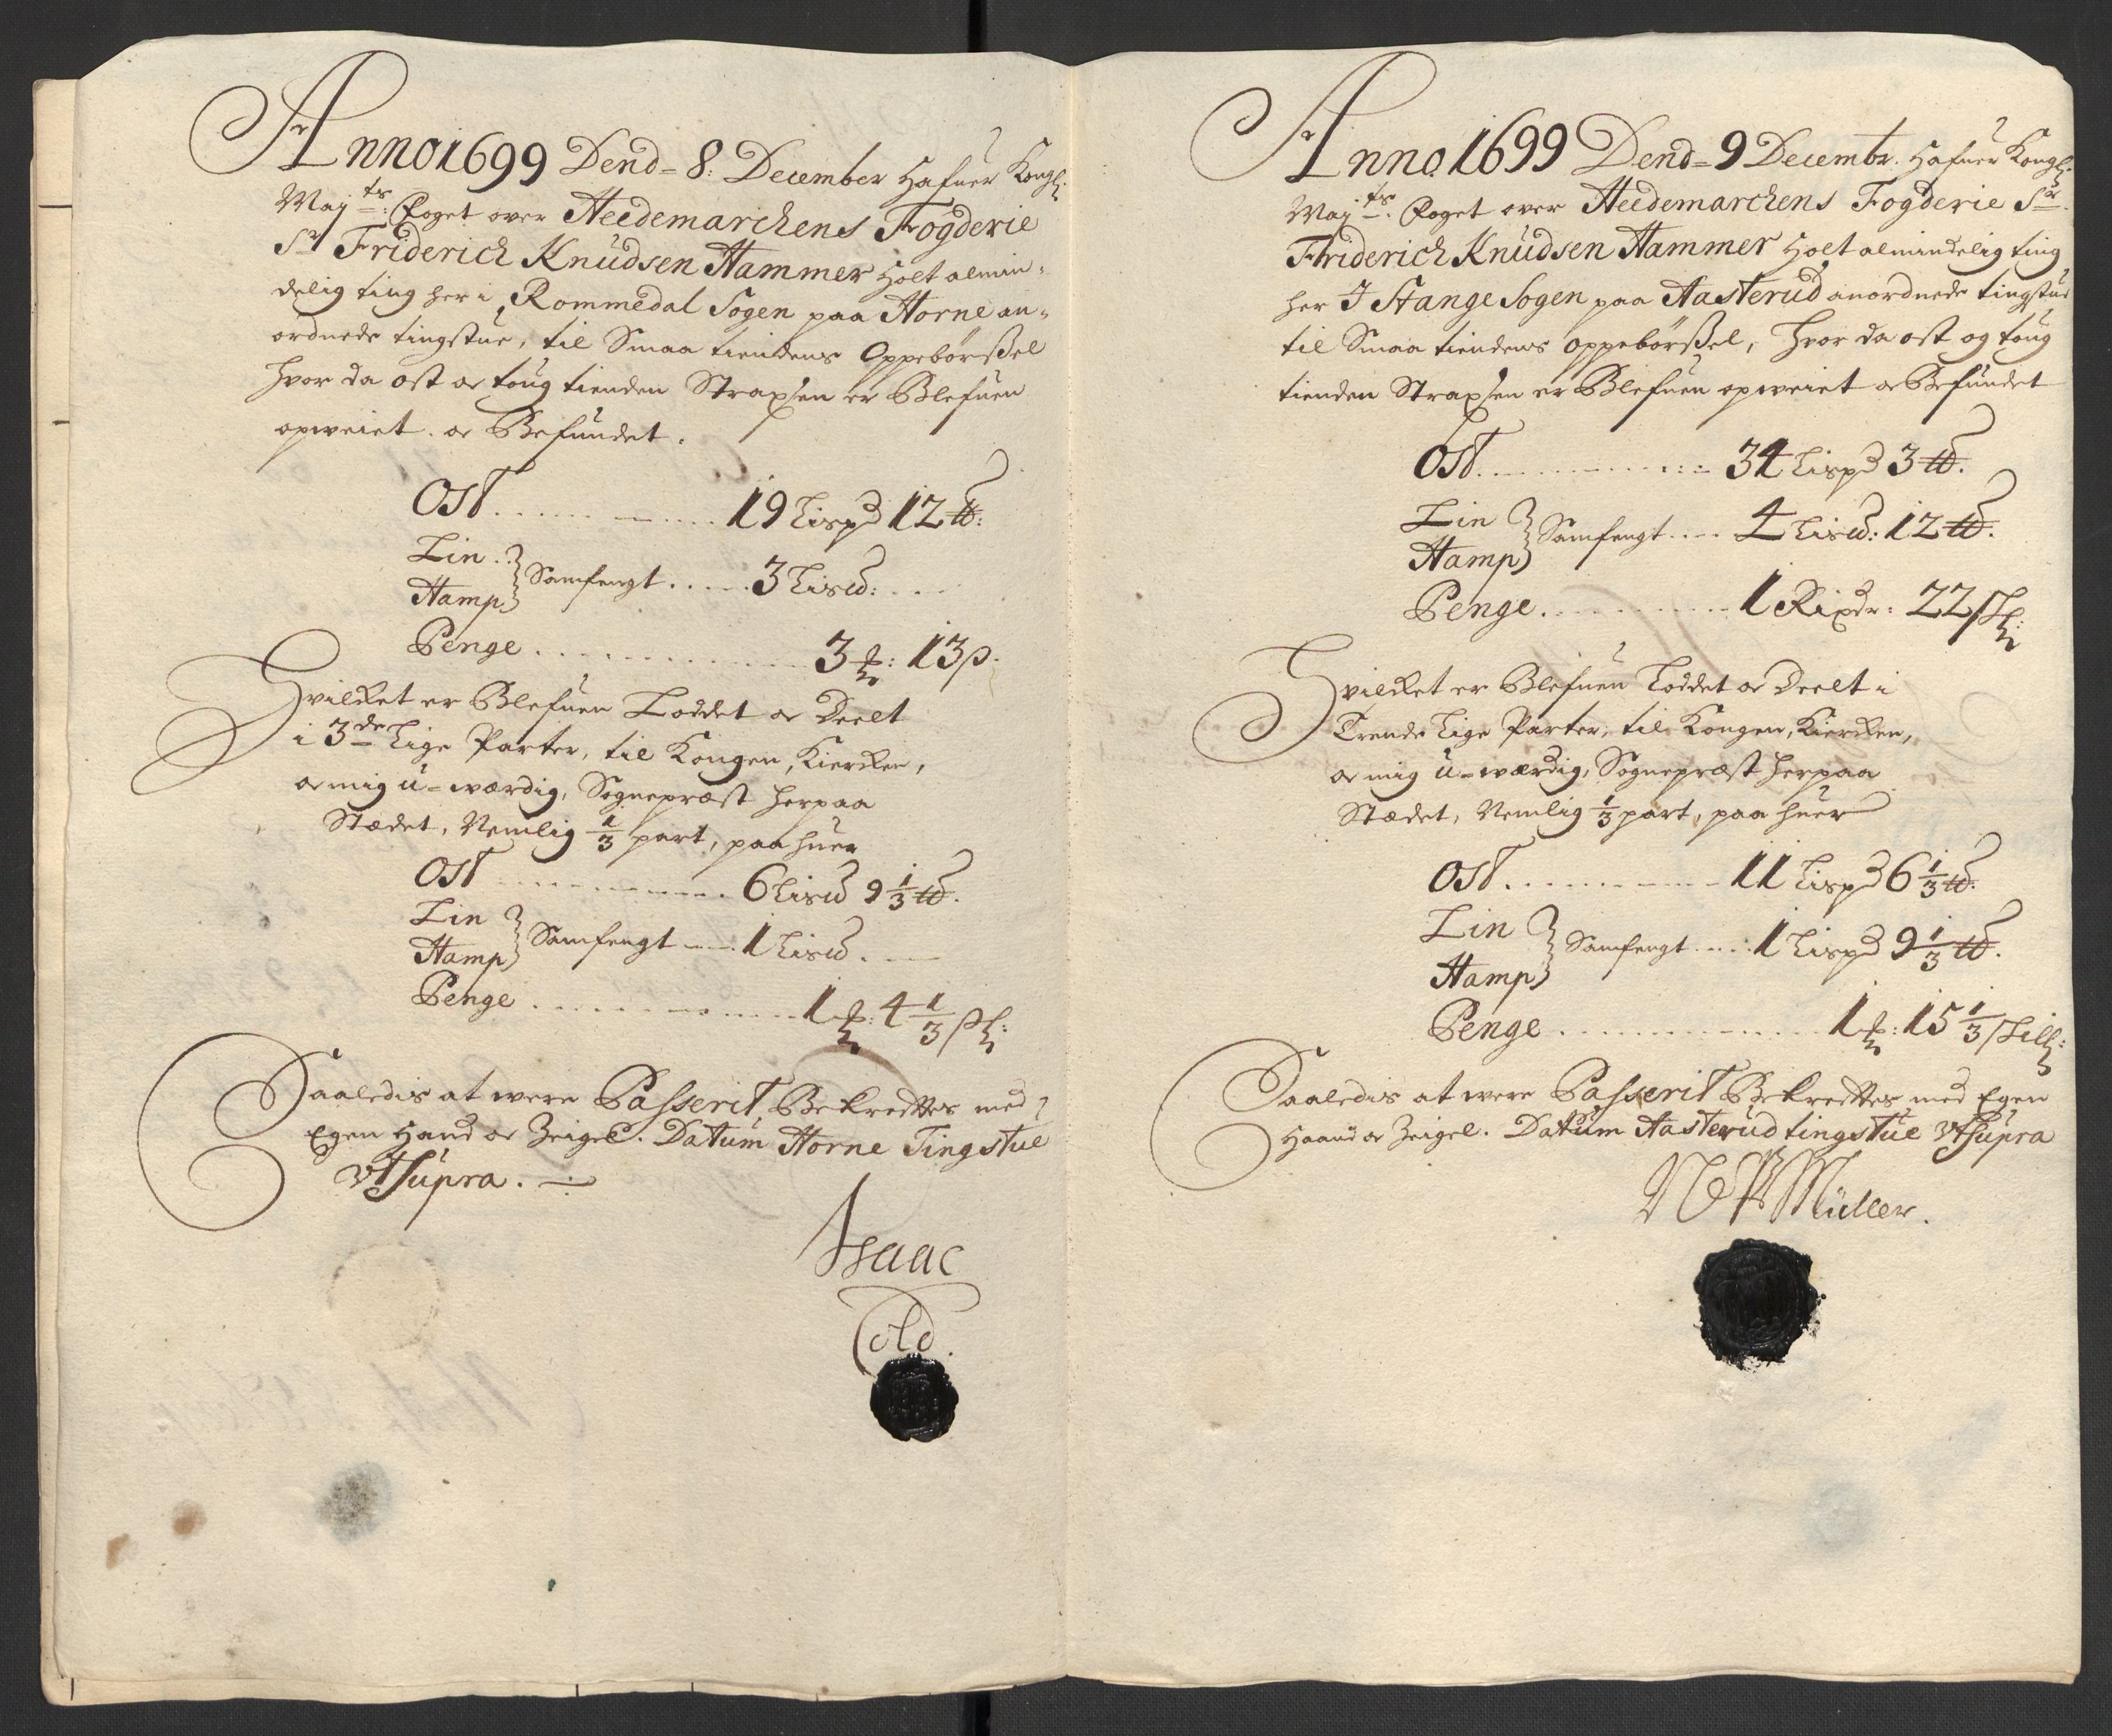 Anno 1699 Dend= 8: December Hafuer Kongl:
Maÿ.ts: Foget over Heedemarchens Fogderie
Sr Friderich Knudsen Hammer Holt almin=
delig ting her i Rommedal Sogen paa Horne an=
ordnede tingstue, til Smaa tiendens Oppebørßel
hvor da ost oc toug tienden Straxsen er Blefuen
opveiet. oc Befundet.
Ost ........ 19 Lispd 12 ℔:
Lin
Hamp } Samfengt ..... 3 Lis℔: ...
Penge .......... 3 rd: 13 ß.
Hvilcket er Blefuen Loddet oc Deelt
i 3de Lige Parter, til Kongen, Kiercken,
oc mig u=værdig, Sognepræst herpaa
Stædet, Nemlig 1/3 part, paa huer
Ost ........ 6 Lis℔ 9 1/3 ℔.
Lin
Hamp } Samfengt .... 1 Lis℔. ..
Penge .......... 1 rd: 4 1/3 ßl:
Saaledis at were Passerit, Bekrefftes med
Egen Haand oc Zeigel. Datum Horne Tingstue
Vt Supra.
Isaac
Cold.
Anno 1699 Dend= 9 Decembr. Hafuer Kongl:
Maÿ.ts: Foget over Heedemarchens Fogderie Sr.
Friderich Knudsen Hammer Holt almindelig ting
her I Stange Sogen paa Aasterud anordnede tingstue
til Smaa tiendens oppebørßel, hvor da ost og toug
tienden Straxsen er Blefuen opveiet oc Befundet
Ost ......... 34 Lispd 3 ℔.
Lin
Hamp } Samfengt .... 4 Lis℔: 12 ℔.
Penge ......... 1 Rixdr: 22 sh:
Hvilcket er Blefuen Loddet oc Deelt i
Trende Lige Parter, til Kongen, Kiercken,
oc mig u=værdig, Sognepræst herpaa
Stædet, Nemlig 1/3 part, paa huer
Ost ......... 11 Lispd 6 1/3 ℔.
Lin
Hamp } Samfengt ..... 1 Lispd 9 1/3 ℔.
Penge .......... 1 rd: 15 1/3 skill:
Saaledis at were Passerit Bekrefftes med Egen
Haand oc Zeigel. Datum Aasterud tingstue Vt Supra
N P Müller.